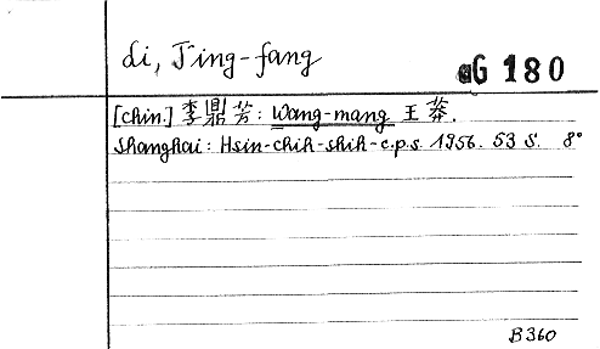 Li, T'ing-fang
aG 180
[Chin.] 李鼎芳: Wang-mang 王莽.
Shanghai: Hsin-chih-shih-c.p.s. 1956. 53 S. 8°
B360